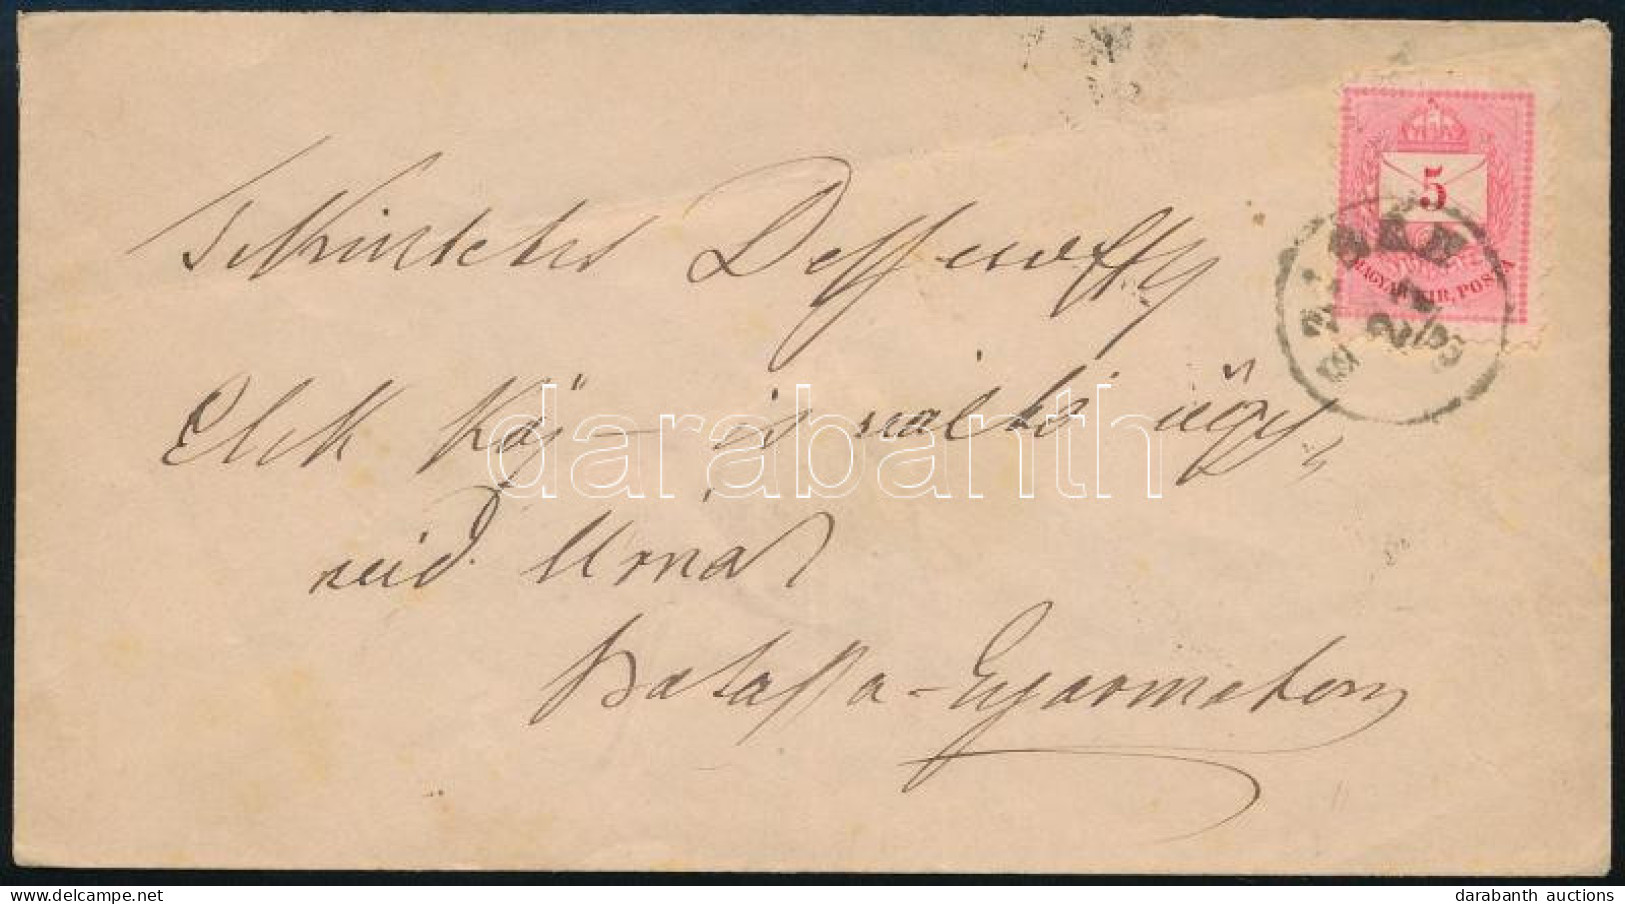 5
MAGYAR KIR. POSTA
Tekintetes Dessewffy
Elek Köz- és váltó ügy,
véd. Urnak
Balassa-Gyarmaton
darabanth
darabanth auctions